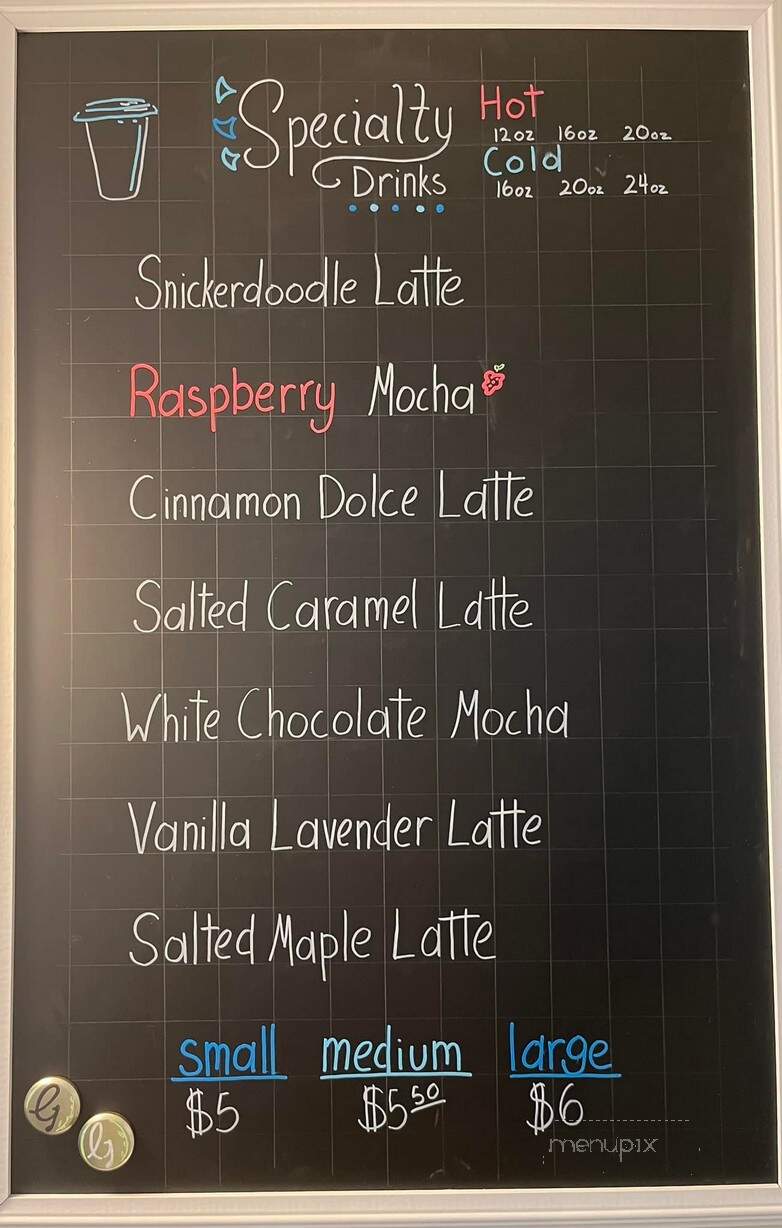 Specialty
Drinks
Hot
12oz 16oz 20oz
Cold
16oz 20oz 24oz
Snickerdoodle Latte
Raspberry Mocha
Cinnamon Dolce Latte
Salted Caramel Latte
White Chocolate Mocha
Vanilla Lavender Latte
Salted Maple Latte
small medium large
$5 $5 50 $6
menupix